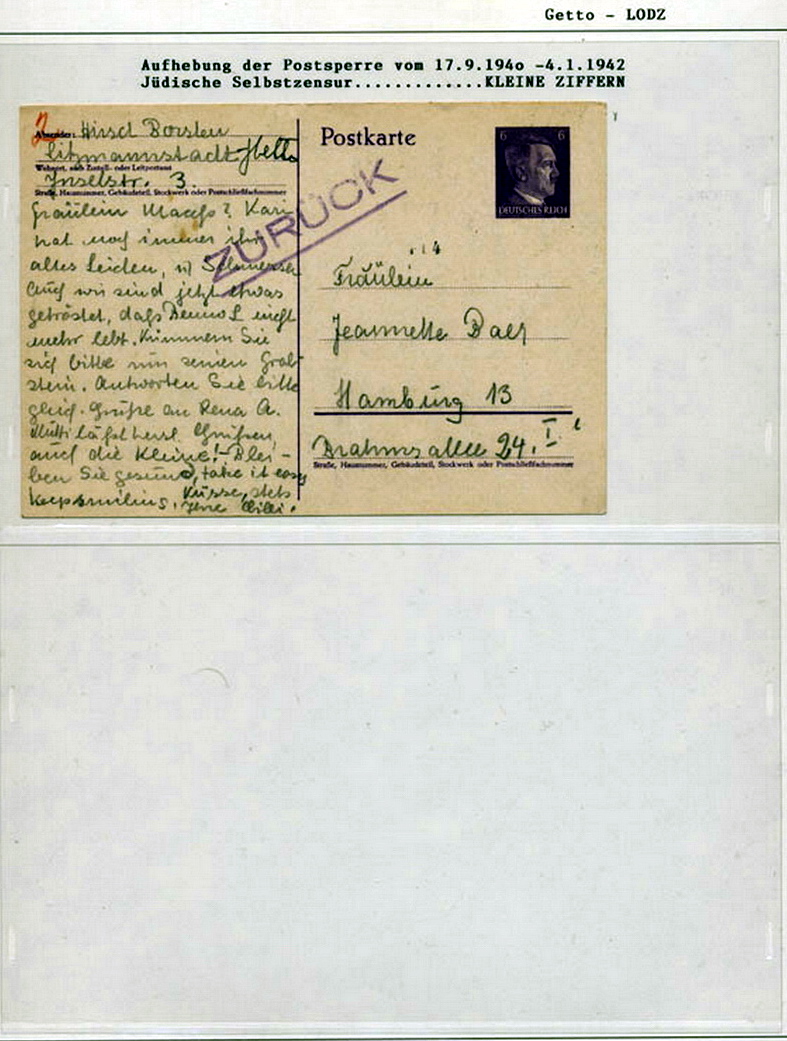 Getto - LODZ
Aufhebung der Postsperre vom 17.9.194o -4.1.1942
Jüdische Selbstzensur.............KLEINE ZIFFERN
2
Absender: Hirsch
Litzmannstadt-Getto
Wohnort, auch Zustell- oder Leitpostamt
Inselstr. 3.
Straße, Hausnummer, Gebäudeteil, Stockwerk oder Postschließfachnummer
Fräulein
hat noch immer ihr
altes Leiden,
Auch wir sind jetzt etwas
getröstet, daß Benno L nicht
mehr lebt. Kümmern Sie
sich bitte um seinen Grab-
stein. Antworten Sie bitte
gleich. Grüße an Rena A.
Mutti läßt herzl. Grüßen,
auch die Kleine! - Blei-
ben Sie gesund, take it easy
keep smiling. Küsse, stets
Ihre
ZURÜCK
Postkarte
6 6
DEUTSCHES REICH
14
Fräulein
Jeannette
Hamburg 13
Brahmsallee 24. I
Straße, Hausnummer, Gebäudeteil, Stockwerk oder Postschließfachnummer